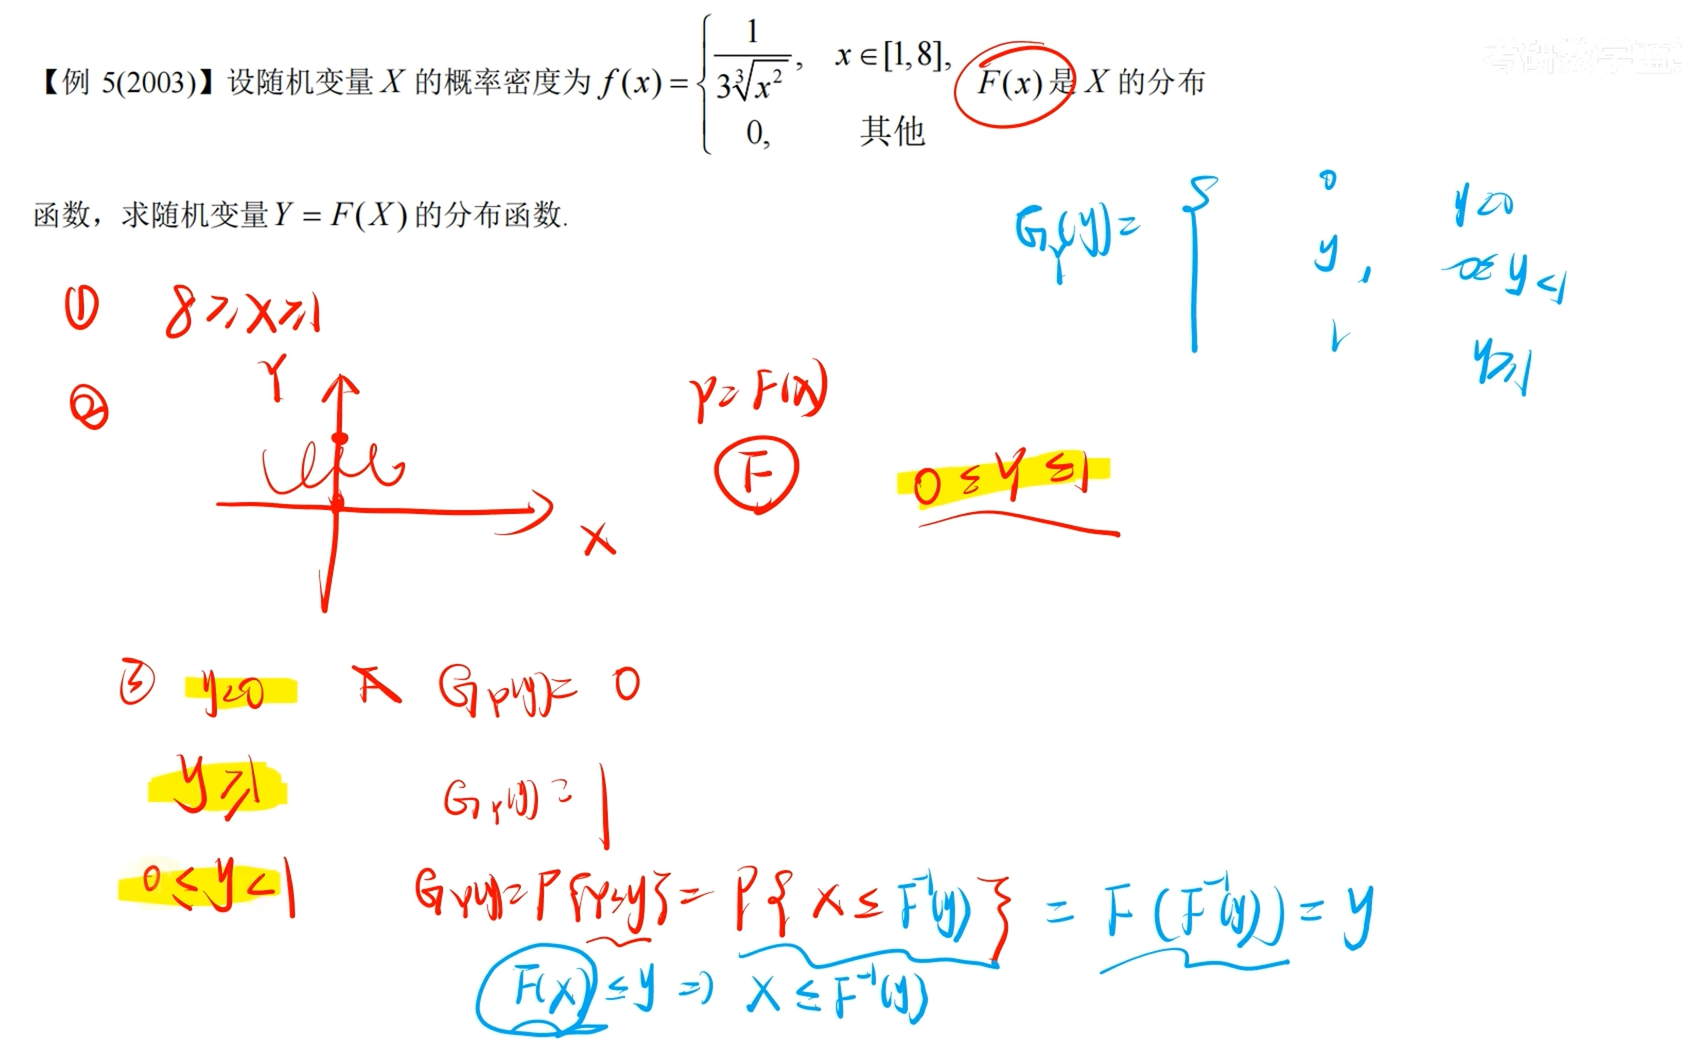 【例 5(2003)】设随机变量 X 的概率密度为 f(x) = { 1/(3∛x²), x∈[1,8], 0, 其他 F(x) 是 X 的分布
函数，求随机变量 Y = F(X) 的分布函数.
G_Y(y) = { 0 y<0
y, 0≤y<1
1 y≥1
① 8≥X≥1
② Y
Y=F(X)
F
0≤Y≤1
X
③ y<0 G_Y(y)= 0
y≥1 G_Y(y)= 1
0≤y<1 G_Y(y)=P{Y≤y}=P{X≤F⁻¹(y)} = F(F⁻¹(y))=y
F(X)≤y ⇒ X≤F⁻¹(y)